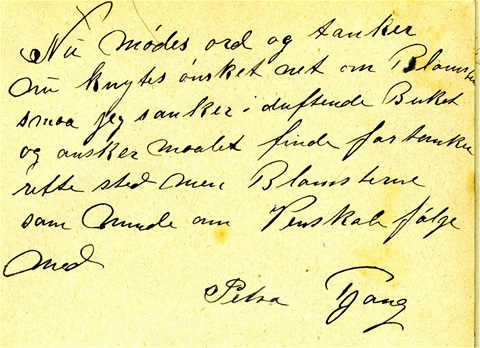 Nu mødes ord og tanker
nu knytes ønsket net om Blomster
smaa jeg sanker i duftende Buket
og ønsker maalet finde for tanken
rette sted men Blomsterne
som minde om Venskab følge
med
Petra